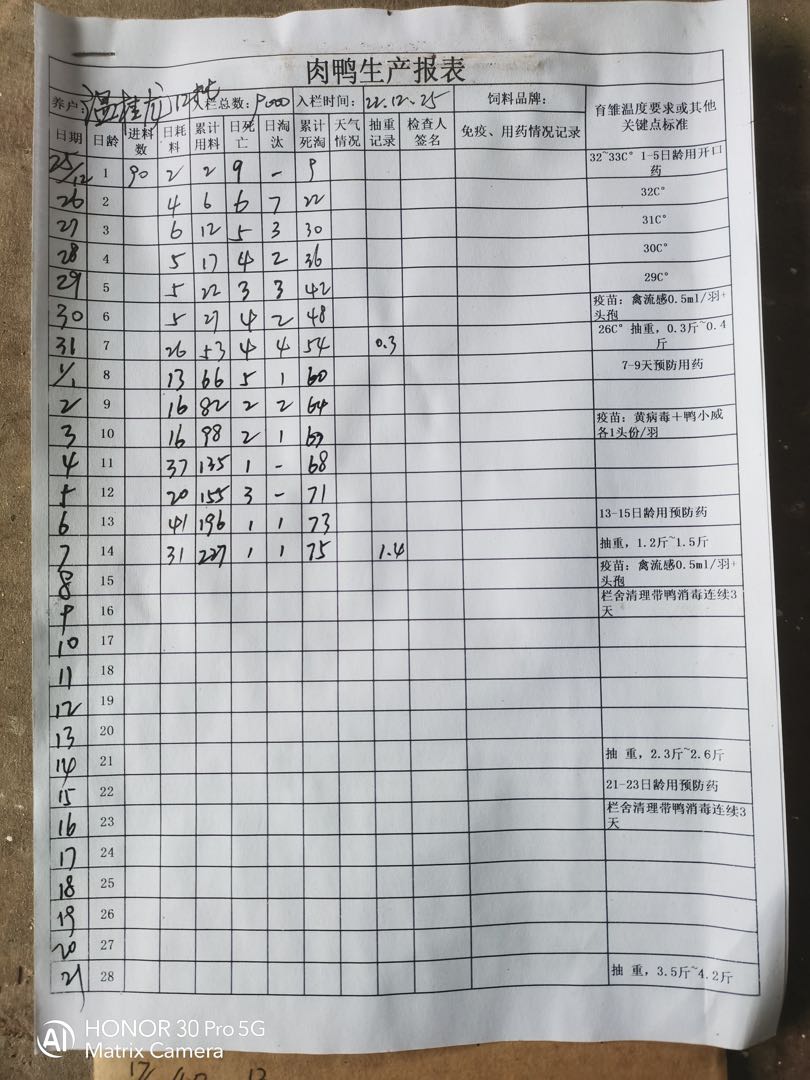 肉鸭生产报表
养户: 温桂龙 12批 入栏总数: 9000 入栏时间: 22.12.25 饲料品牌: 育雏温度要求或其他关键点标准
日期 日龄 进料数 日耗料 累计用料 日死亡 日淘汰 累计死淘 天气情况 抽重记录 检查人签名 免疫、用药情况记录
25/12 1 90 2 2 9 - 9 32~33C° 1-5日龄用开口药
26 2 4 6 6 7 22 32C°
27 3 6 12 5 3 30 31C°
28 4 5 17 4 2 36 30C°
29 5 5 22 3 3 42 29C°
30 6 5 27 4 2 48 疫苗: 禽流感0.5ml/羽+头孢
31 7 26 53 4 4 54 0.3 26C° 抽重, 0.3斤~0.4斤
1/1 8 13 66 5 1 60 7-9天预防用药
2 9 16 82 2 2 64
3 10 16 98 2 1 67 疫苗: 黄病毒+鸭小威各1头份/羽
4 11 37 135 1 - 68
5 12 20 155 3 - 71
6 13 41 196 1 1 73 13-15日龄用预防药
7 14 31 227 1 1 75 1.4 抽重, 1.2斤~1.5斤
8 15 疫苗: 禽流感0.5ml/羽+头孢
9 16 栏舍清理带鸭消毒连续3天
10 17
11 18
12 19
13 20
14 21 抽 重, 2.3斤~2.6斤
15 22 21-23日龄用预防药
16 23 栏舍清理带鸭消毒连续3天
17 24
18 25
19 26
20 27
21 28 抽 重, 3.5斤~4.2斤
AI HONOR 30 Pro 5G
Matrix Camera